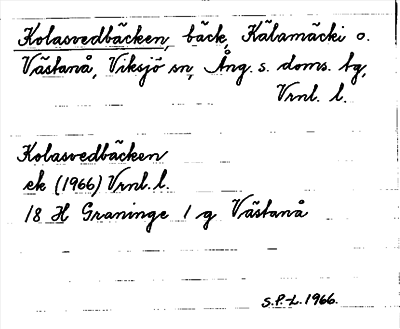 Kolasvedbäcken, bäck, Kälamäcki o.
Västanå, Viksjö sn, Ång. s. doms. tg,
Vrnl. l.
Kolasvedbäcken
ek (1966) Vrnl. l.
18 H Graninge 1 g Västanå
S.P.-L. 1966.